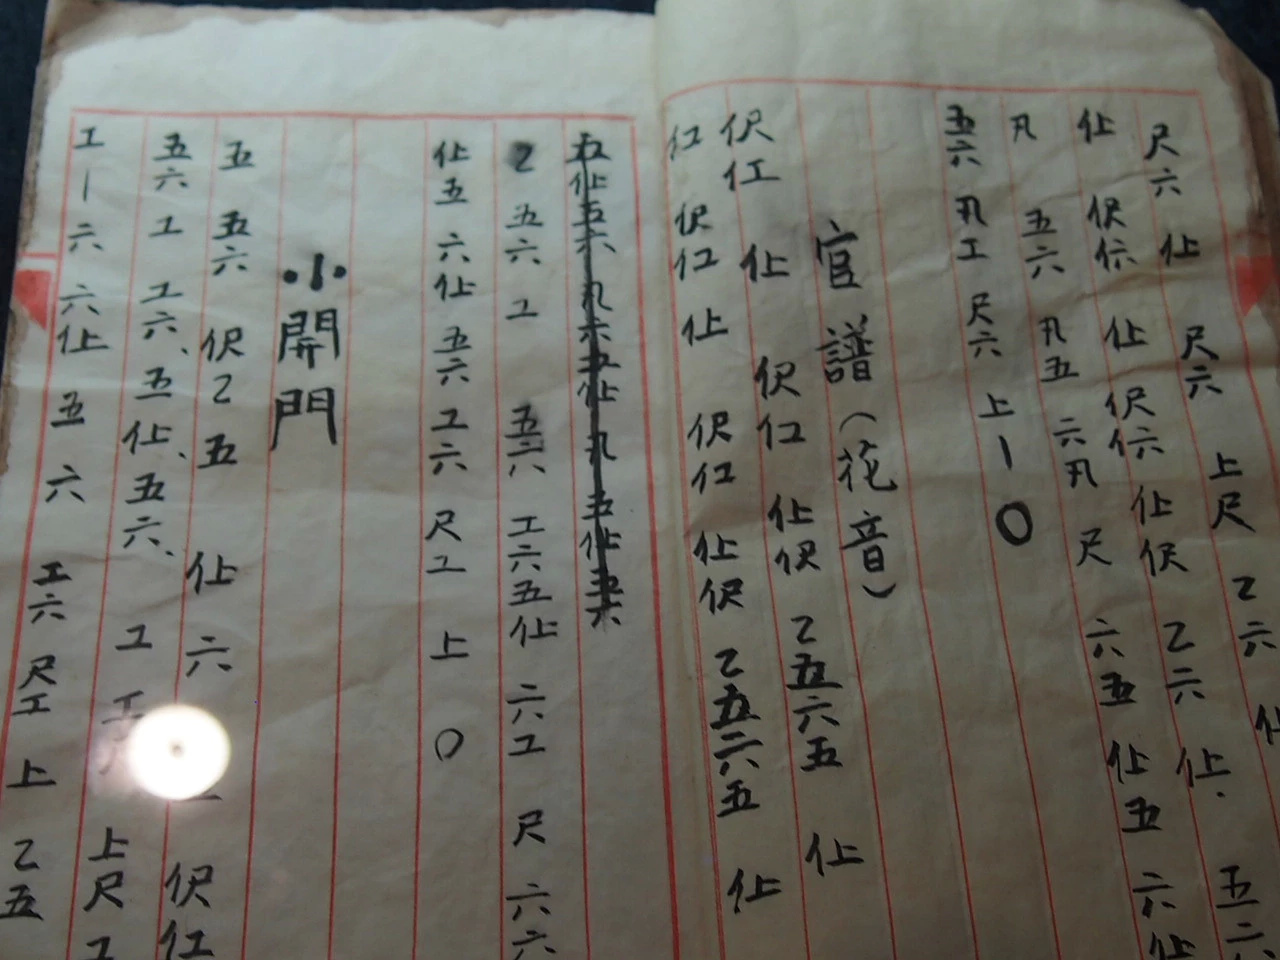 尺六 仩 尺六 上尺 乙六 仩 五六
仩 伬㐳 仩 伬㐳 仩伬 乙六 仩.
凡 五六 凡五 六凡 尺 六五 仩五 六仩
五六凡工 尺六 上 〡 〇
官譜(花音)
伬仜 仩 伬仜 仩伬 乙五六五 仩
仜 伬仜 仩 伬仜 仩伬 乙五六五 仩
五仩五六凡六五仩 凡 五仩五六
乙 五六 工 五六 工六五仩 六工 尺 六六
仩五 六仩 五六工六 尺工 上 〇
小開門
五 五六 伬乙五 仩 六 伬仜
五六工 工六、五仩、五六、 工 上尺工
工〡六 六仩 五 六 工六 尺工 上 乙五